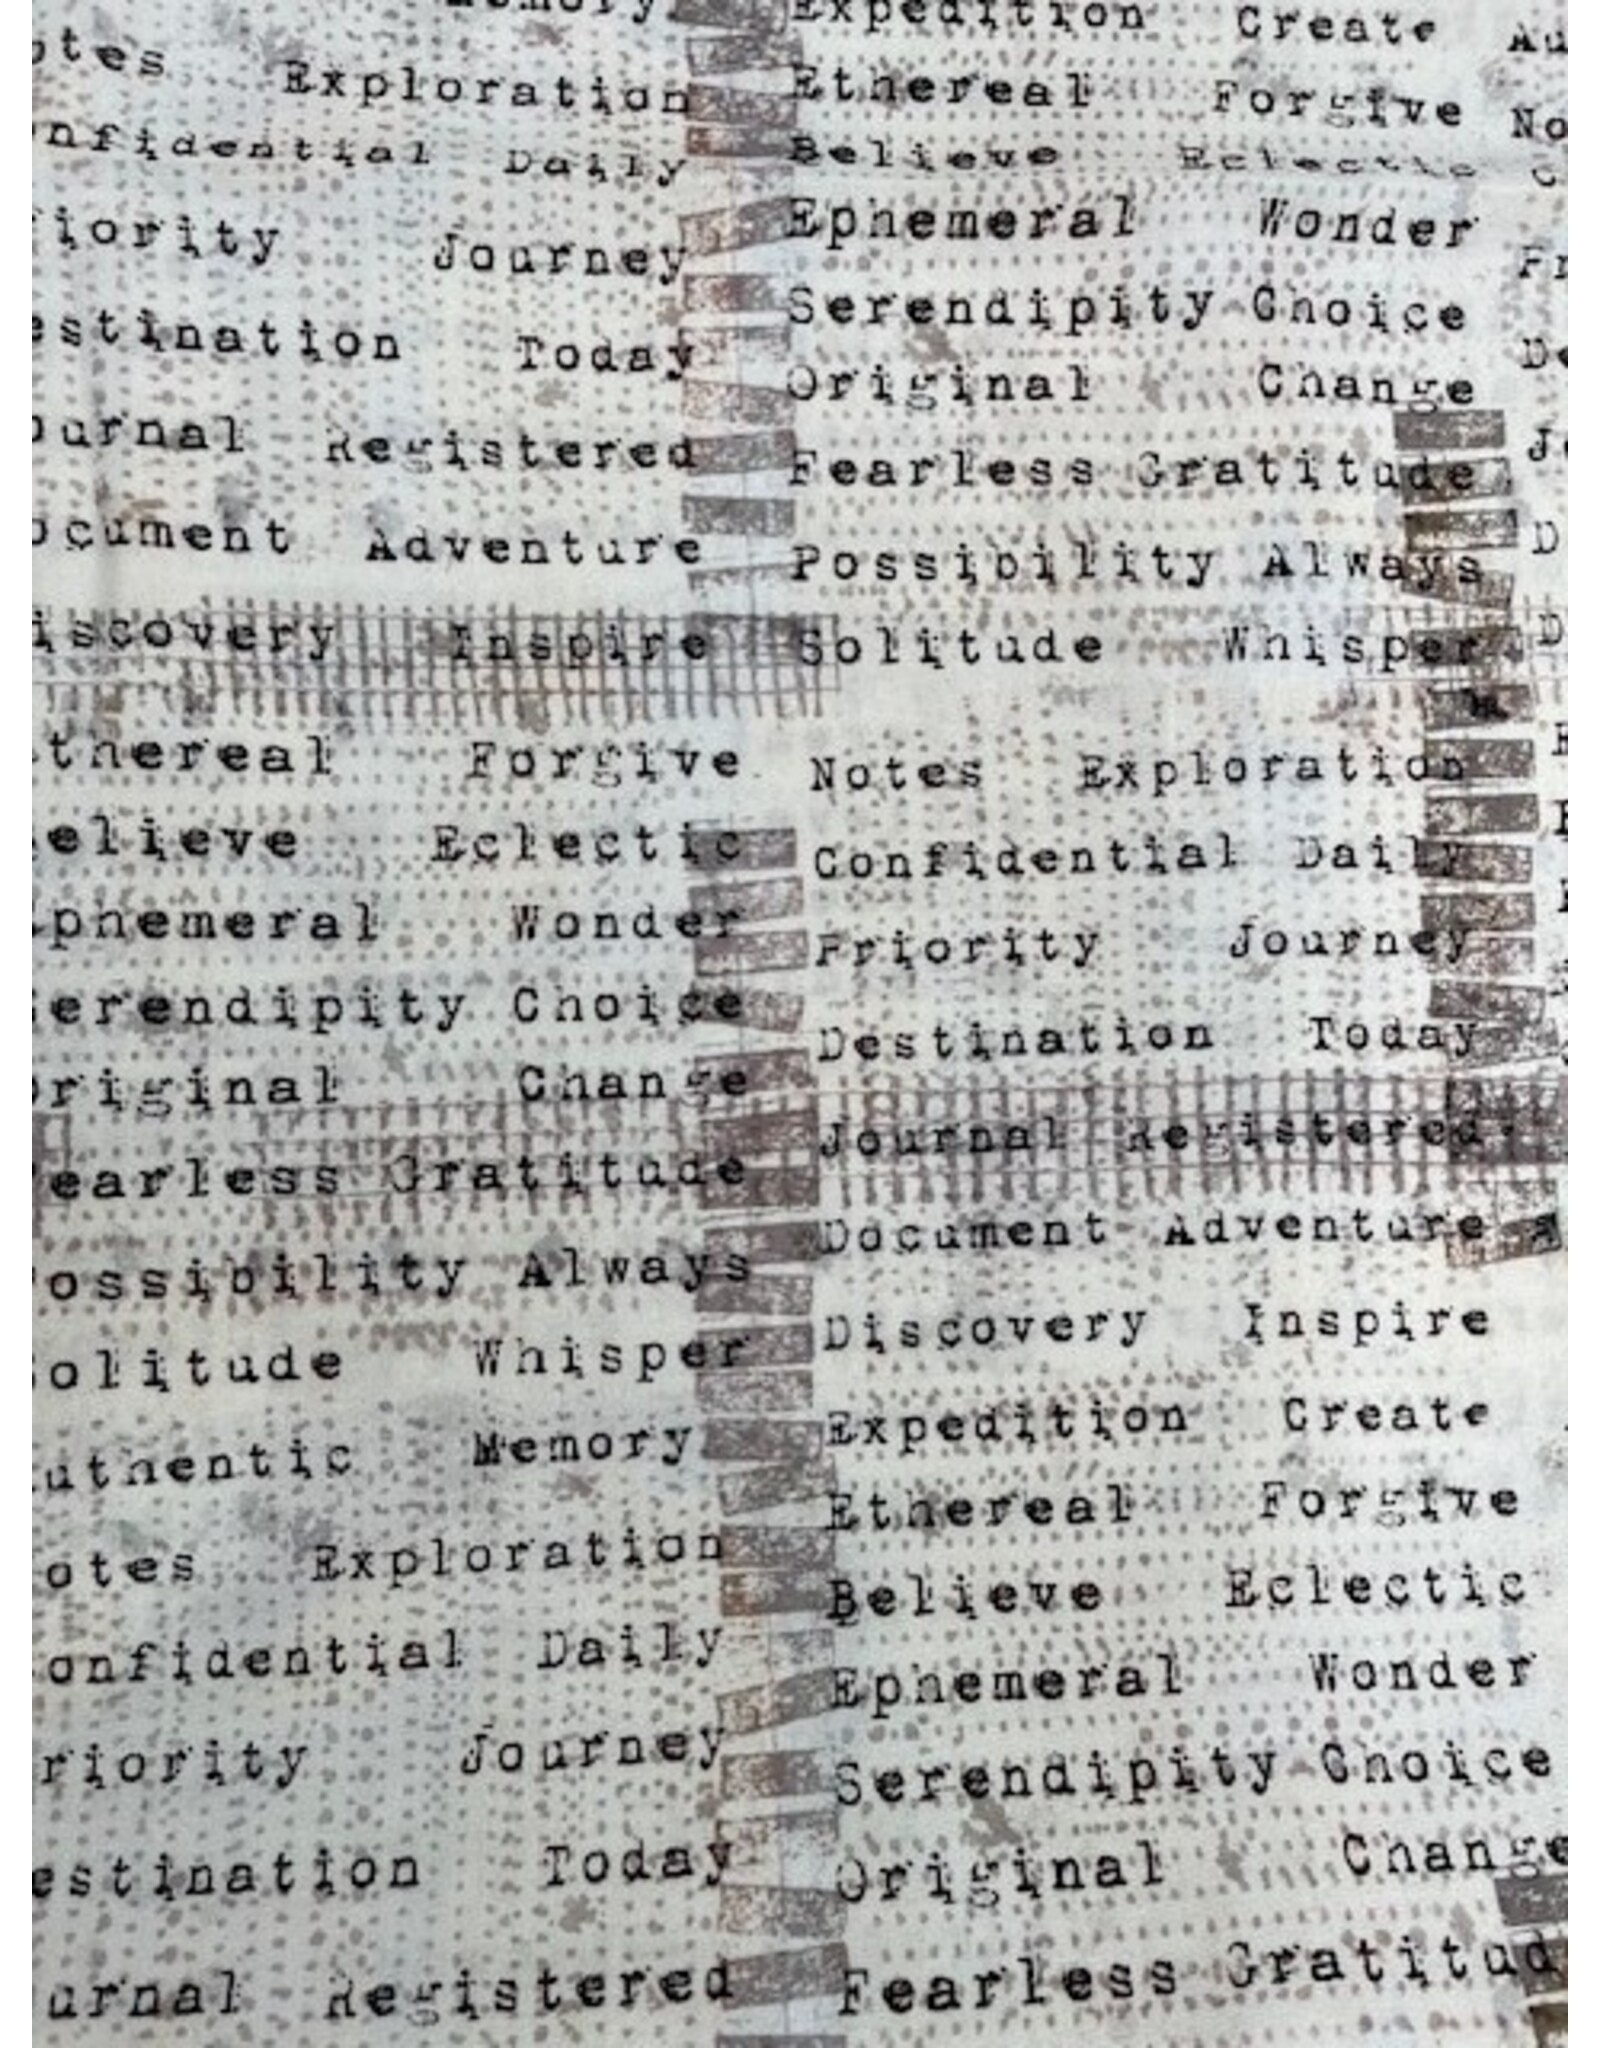 emory
otes Exploration
nfidential Daily
iority Journey
estination Today
ournal Registered
ocument Adventure
iscovery Inspire
thereal Forgive
elieve Eclectic
phemeral Wonder
erendipity Choice
riginal Change
earless Gratitude
ossibility Always
olitude Whisper
uthentic Memory
otes Exploration
onfidential Daily
riority Journey
estination Today
urnal Registered
Expedition Create
Ethereal Forgive
Believe Eclectic
Ephemeral Wonder
Serendipity Choice
Original Change
Fearless Gratitude
Possibility Always
Solitude Whisper
Notes Exploration
Confidential Daily
Priority Journey
Destination Today
Journal Registered
Document Adventure
Discovery Inspire
Expedition Create
Ethereal Forgive
Believe Eclectic
Ephemeral Wonder
Serendipity Choice
Original Change
Fearless Gratitud
Au
No
C
Fr
De
Jo
D
D